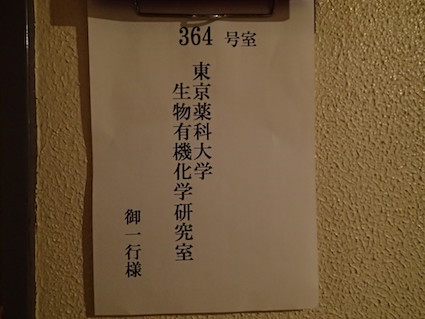 364 号室
東京薬科大学
生物有機化学研究室
御一行様